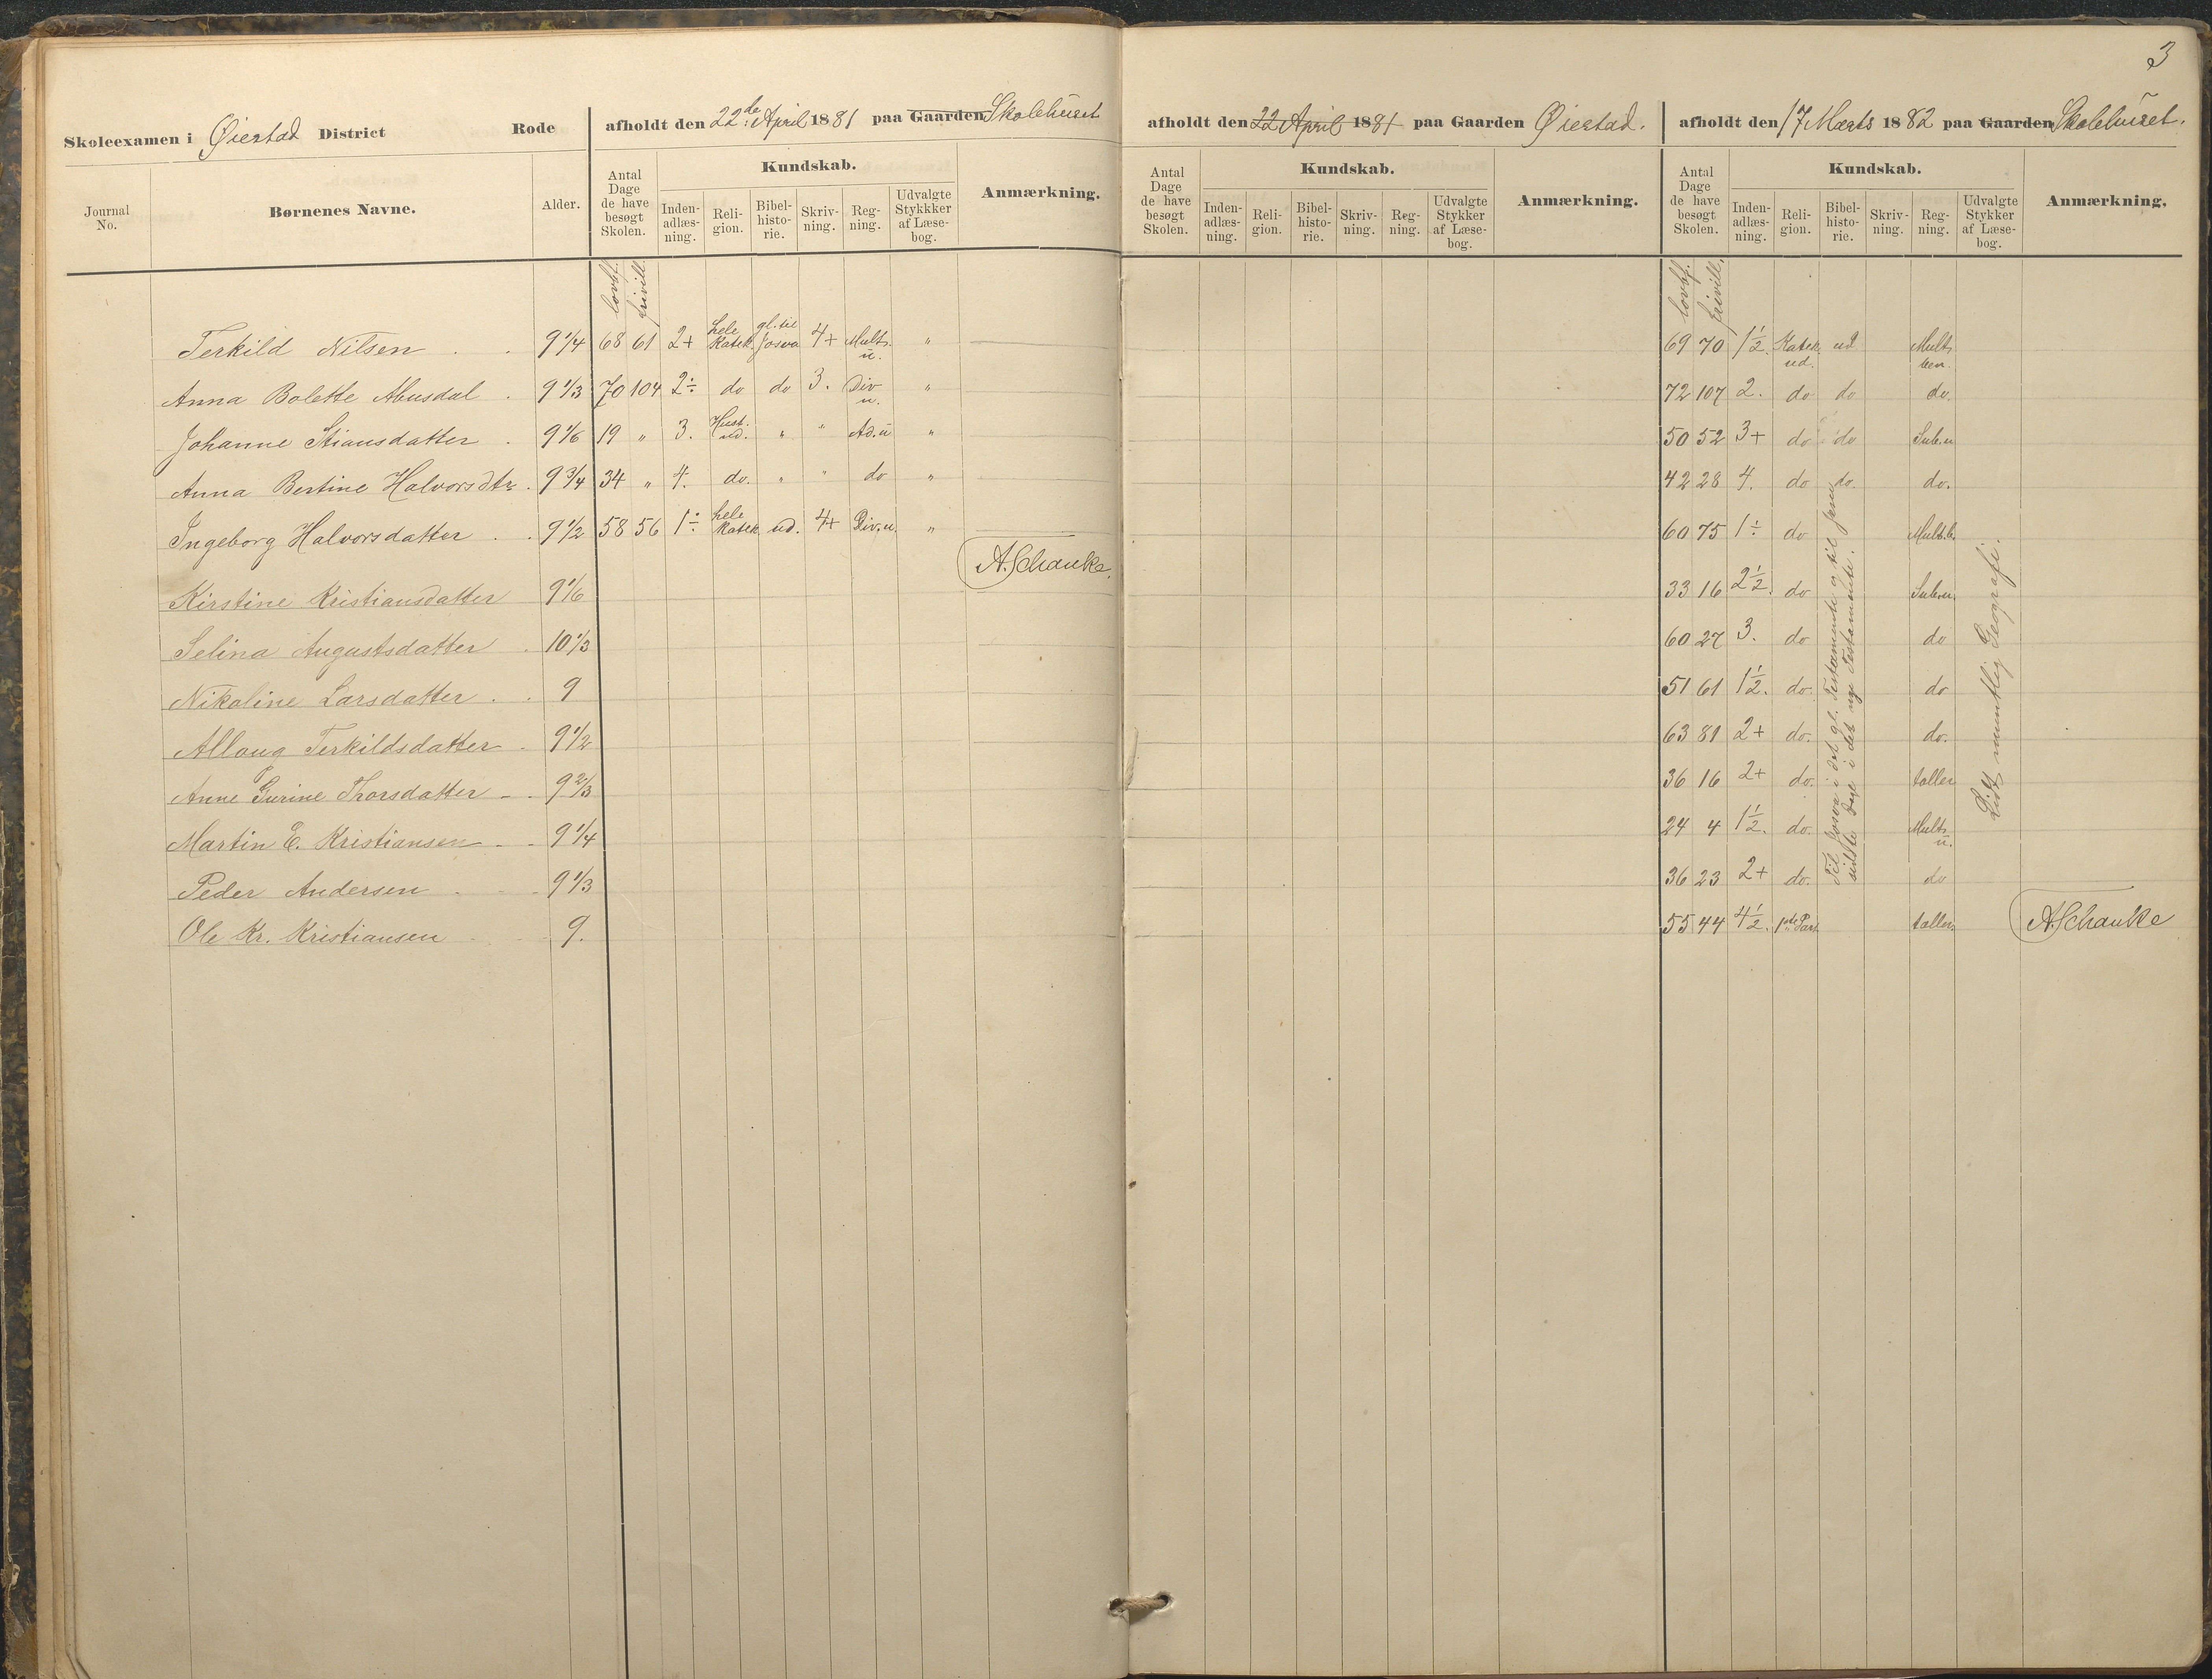 3
Skoleexamen i Øiestad District Rode
afholdt den 22de April 1881 paa Gaarden Skolehuset
afholdt den 22 April 1881 paa Gaarden Øiestad.
afholdt den 17 Marts 1882 paa Gaarden Skolehuset.
Journal No. Børnenes Navne. Alder.
Antal Dage de have besøgt Skolen. Kundskab. Inden-adlæs-ning. Reli-gion. Bibel-histo-rie. Skriv-ning. Reg-ning. Udvalgte Stykkker af Læse-bog. Anmærkning.
Antal Dage de have besøgt Skolen. Kundskab. Inden-adlæs-ning. Reli-gion. Bibel-histo-rie. Skriv-ning. Reg-ning. Udvalgte Stykker af Læse-bog. Anmærkning.
Antal Dage de have besøgt Skolen. Kundskab. Inden-adlæs-ning. Reli-gion. Bibel-histo-rie. Skriv-ning. Reg-ning. Udvalgte Stykker af Læse-bog. Anmærkning.
lovbf. frivill. lovbf. frivill.
Terkild Nilsen . . 9 1/4 68 61 2+ hele Katek. gl. til Josva 4+ Mult. u. " 69 70 1 1/2. Katek. ud. ud Mult. ben.
Anna Bolette Abusdal . 9 1/3 70 104 2÷ do do 3. Div u. " 72 107 2. do do do.
Johanne Stiansdatter . 9 1/6 19 " 3. Hust. ud. " " Ad. u " 50 52 3+ do do Sub. u
Anna Bertine Halvorsdtr. 9 3/4 34 " 4. do. " " do " 42 28 4. do do. do.
Ingeborg Halvorsdatter . . 9 1/2 58 56 1÷ hele Katek. ud. 4+ Div. u. " 60 75 1÷ do Mult. b.
A. Schanke.
Kirstine Kristiansdatter 9 1/6 33 16 2 1/2. do Sub. u.
Selina Augustsdatter . 10 1/3 60 27 3. do do
Nikoline Larsdatter . . 9 51 61 1 1/2. do. do
Alloug Terkildsdatter . 9 1/2 63 81 2+ do. do.
Anne Gurine Thorsdatter - . 9 2/3 36 16 2+ do. taller
Martin E. Kristiansen - - 9 1/4 24 4 1 1/2. do. Mult. u.
Peder Andersen . - - 9 1/3 36 23 2+ do. do
Ole Kr. Kristiansen - - - 9. 55 44 4 1/2. 1ste Part taller A. Schanke
Til Josva i det gl. Testamente og til Jesu
sidste Dage i det nye Testamente.
Lidt mundtlig Geografi.